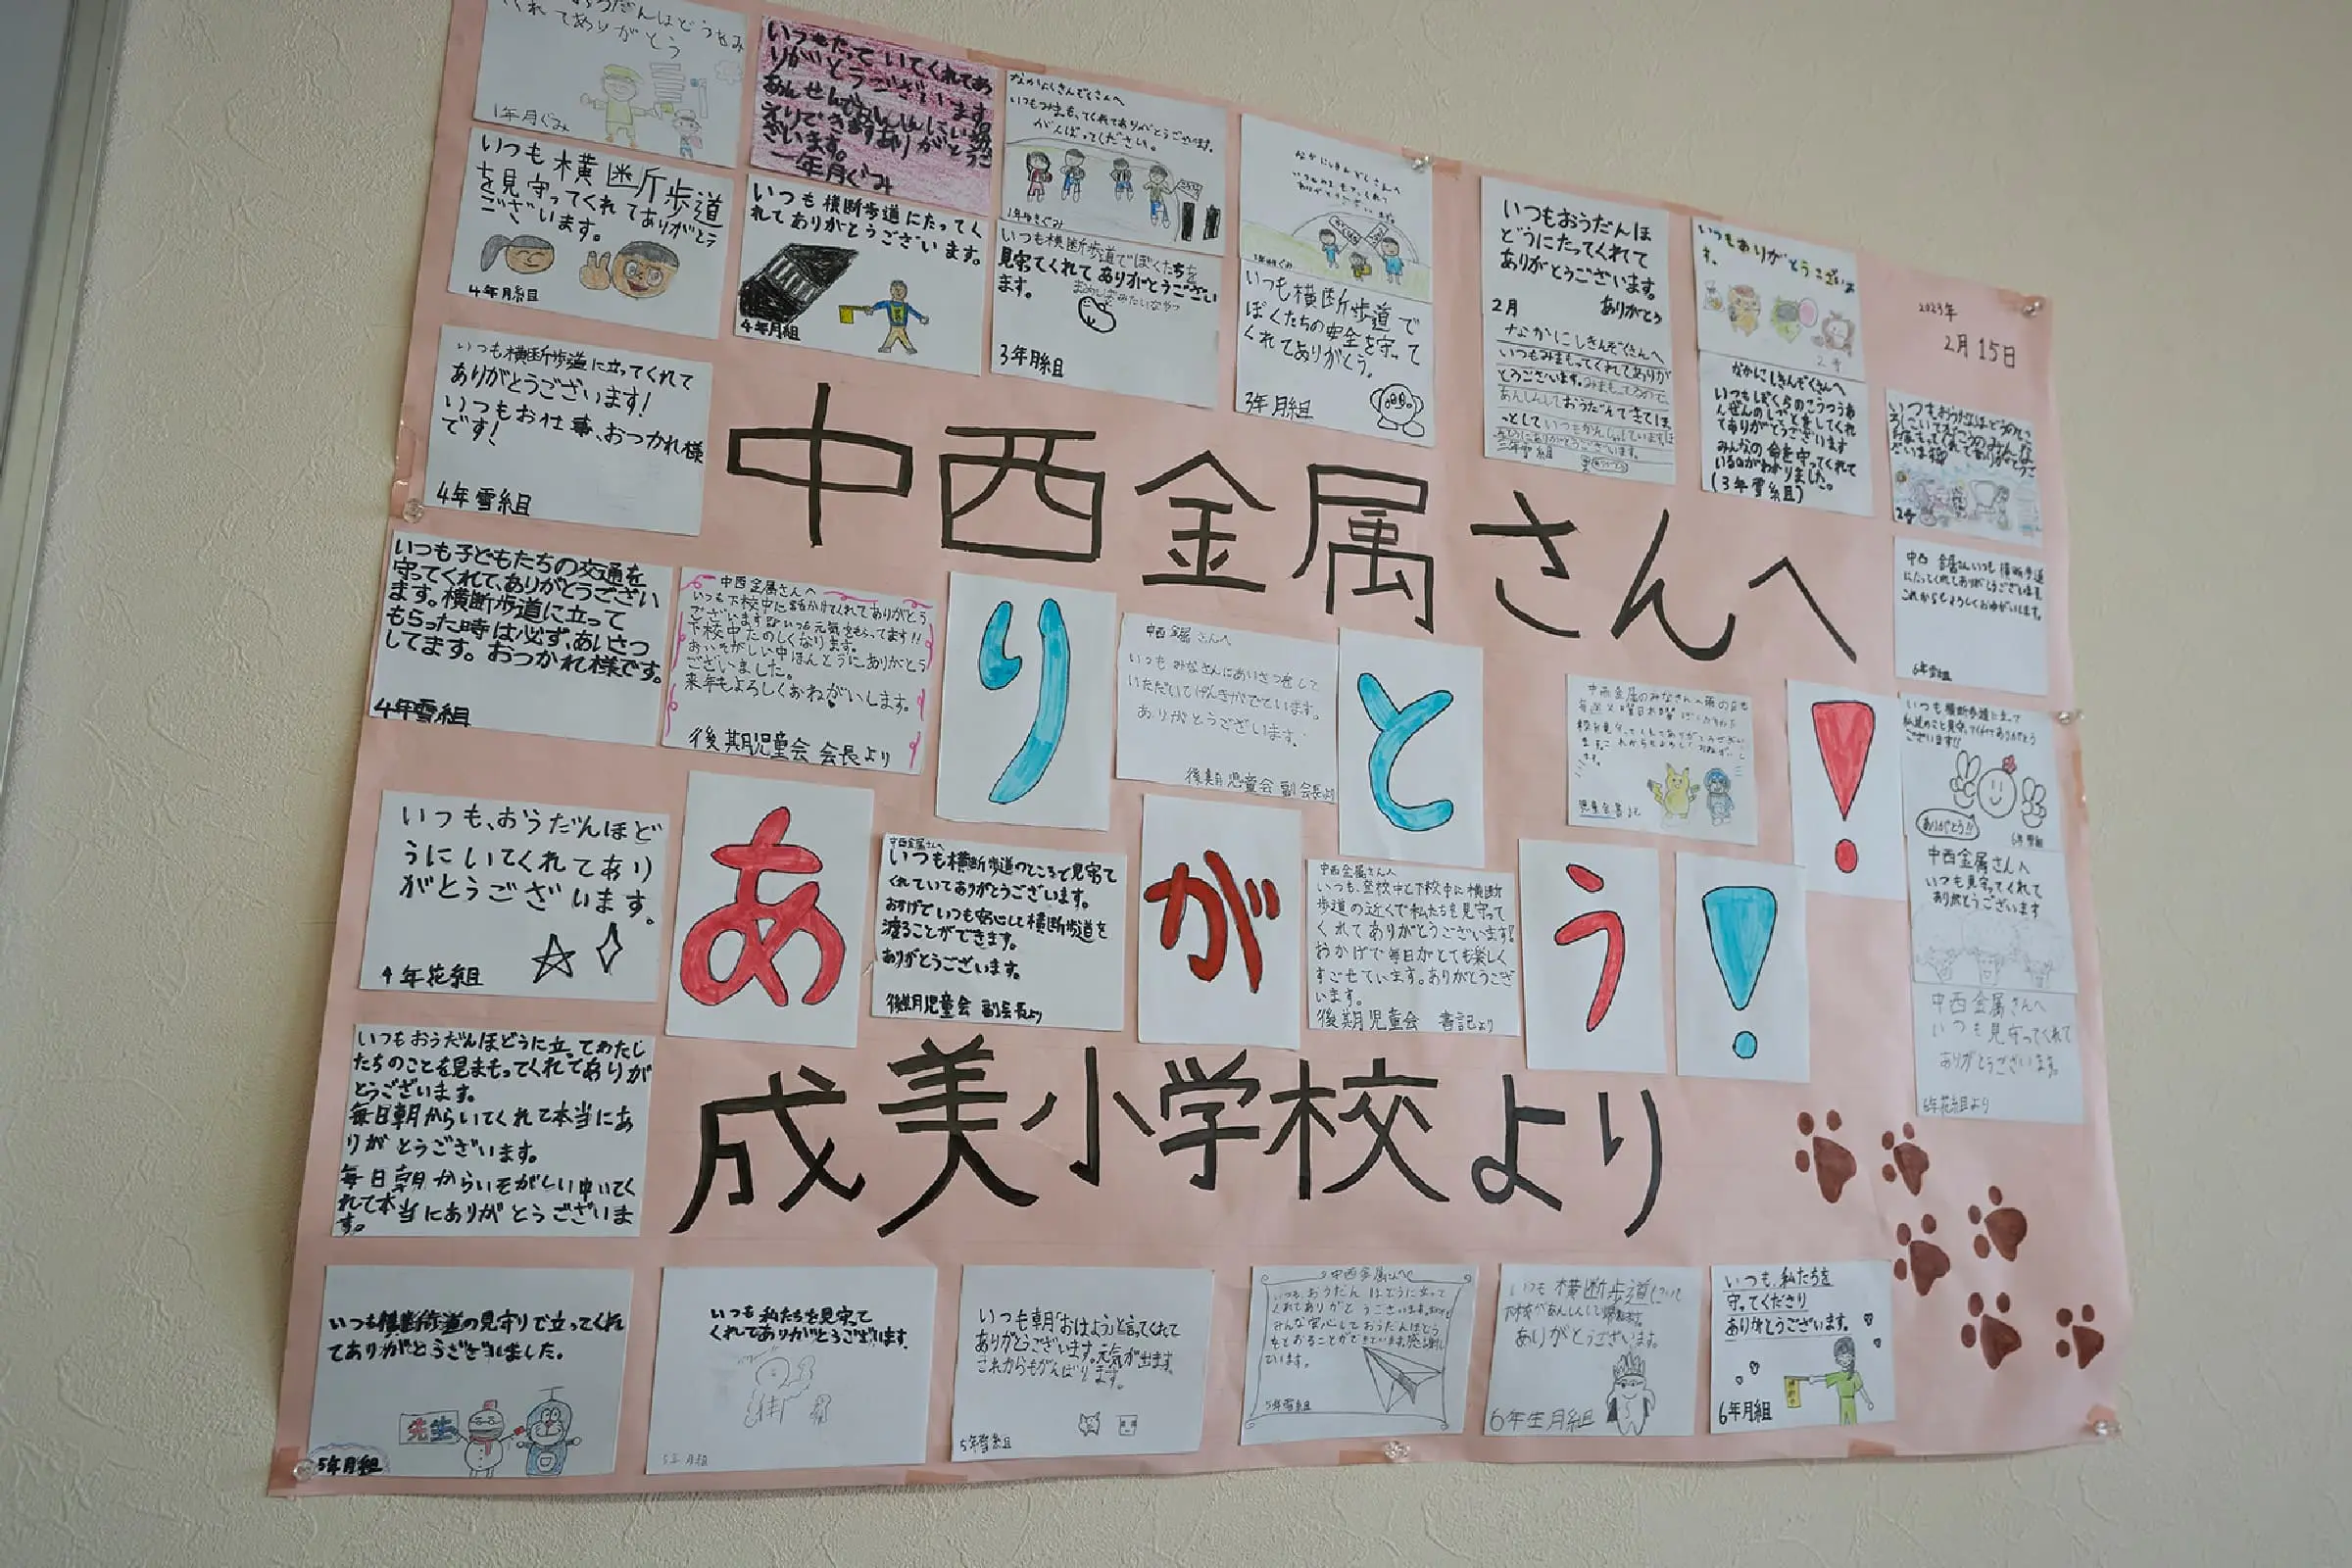 中西金属さんへ
ありがとう!!
成美小学校より
2月15日
くれてありがとう
1年月ぐみ
いつもたっていてくれてあ
りがとうございます。
ざいます。
一年月ぐみ
なかにしきんぞくさんへ
がんばってください。
いつも横断歩道
を見守ってくれてありがとう
ございます。
4年月組
いつも横断歩道にたってく
れてありがとうございます。
4年月組
いつも横断歩道でぼくたちを
見守ってくれてありがとうござい
ます。
3年月組
なかにしきんぞくさんへ
いつも横断歩道で
ぼくたちの安全を守って
くれてありがとう。
3年月組
いつもおうだんほ
どうにたってくれて
ありがとうございます。
2月 ありがとう
なかにしきんぞくさんへ
いつもみまもってくれてありが
とうございます。
三年雪組
いつもありがとうございま
す。
なかにしきんぞくさんへ
いつもぼくらのこうつうあ
んぜんのしごとをしてくれ
てありがとうございます
みんなの命を守ってくれて
いるのがわかりました。
(3年雪組)
中西金属さんいつも横断歩道
にたってくれてありがとうございます。
これからもよろしくおねがいします。
6年雪組
いつも横断歩道に立ってくれて
ありがとうございます!
いつもお仕事、おつかれ様
です!
4年雪組
いつも子どもたちの交通を
守ってくれて、ありがとうござい
ます。横断歩道に立って
もらった時は必ず、あいさつ
してます。おつかれ様です。
4年雪組
中西金属さんへ
いつも下校中に話かけてくれてありがとう
ございます いつも元気をもらってます!!
下校中たのしくなります。
おいそがしい中ほんとうにありがとう
ございました。
来年もよろしくおねがいします。
後期児童会 会長より
中西金属さんへ
いつもみなさんにあいさつをして
いただいてげんきがでています。
ありがとうございます。
後期児童会 副会長より
中西金属のみなさんへ
児童会書記
いつも横断歩道に立って
私達のこと見守ってくれてありがとう
ございます!!
ありがとう!!
6年雪組
中西金属さんへ
いつも見守ってくれて
ありがとうございます
中西金属さんへ
いつも見守ってくれて
ありがとうございます。
6年花組より
いつも、おうだんほど
うにいてくれてあり
がとうございます。
4年花組
中西金属さんへ
いつも横断歩道のところで見守って
くれていてありがとうございます。
おかげでいつも安心して横断歩道を
渡ることができます。
ありがとうございます。
後期児童会 副会長より
中西金属さんへ
いつも、登校中と下校中に横断
歩道の近くで私たちを見守って
くれてありがとうございます!
おかげで毎日がとても楽しく
すごせています。ありがとうござ
います。
後期児童会 書記より
いつもおうだんほどうに立ってわたし
たちのことを見まもってくれてありが
とうございます。
毎日朝からいてくれて本当にあ
りがとうございます。
毎日朝からいそがしい中いてく
れて本当にありがとうございま
す。
いつも横断歩道の見守りで立ってくれ
てありがとうございました。
先生
5年月組
いつも私たちを見守って
くれてありがとうございます。
5年月組
いつも朝「おはよう」と言ってくれて
ありがとうございます。元気が出ます。
これからもがんばります。
5年雪組
中西金属さんへ
いつも、おうだんほどうに立って
くれてありがとうございます。
みんな安心しておうだんほどう
をとおることができています。
います。
5年雪組
いつも横断歩道に
ありがとうございます。
6年生月組
いつも、私たちを
守ってくださり
ありがとうございます。
6年月組